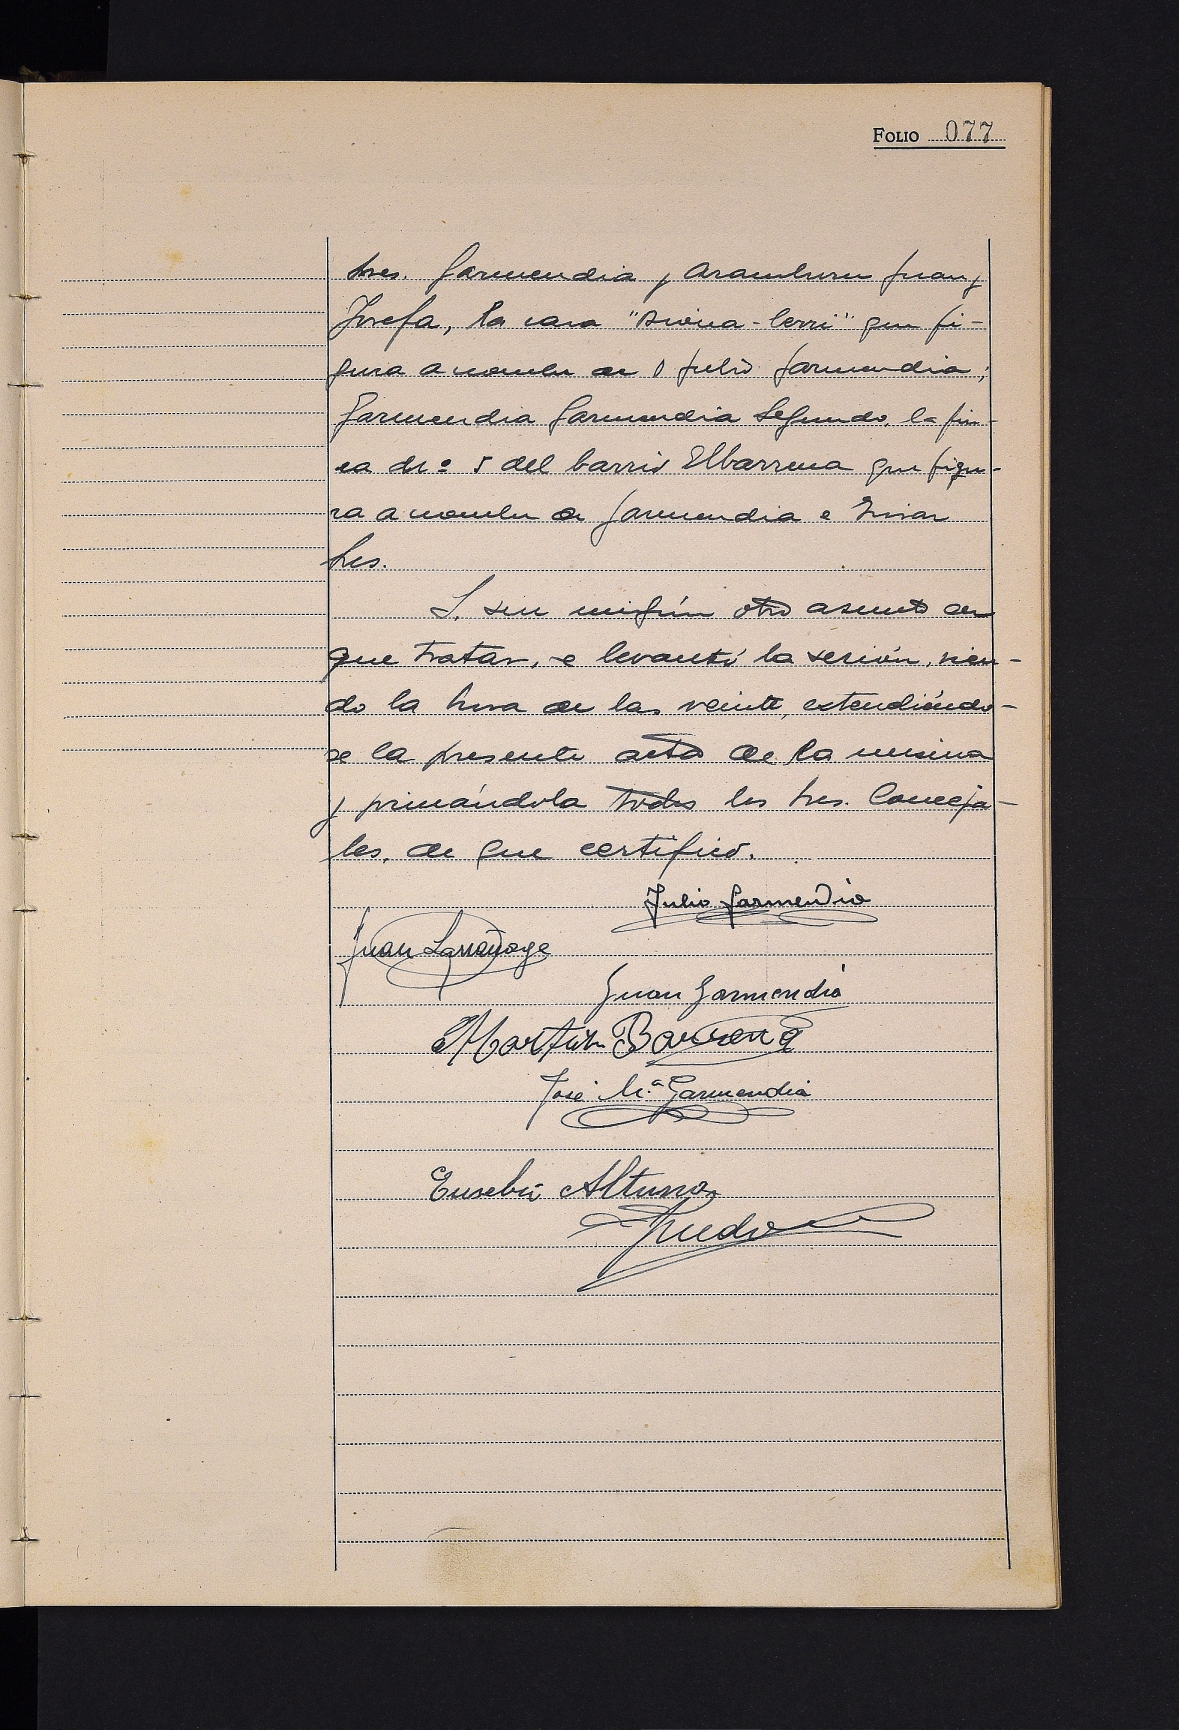 FOLIO 077
hres. Garmendia y Aramburu Juan y
Josefa, la casa "Aroma-berri" que fi-
gura a nombre de D Julio Garmendia;
Garmendia Garmendia Segundo, la fin-
ca de nº 5 del barrio Elbarrena que figu-
ra a nombre de Garmendia e
hres.
Y, sin ningún otro asunto de
que tratar, se levantó la sesión, sien-
do la hora de las veinte, extendiéndo-
se la presente acta de la misma
y firmándola todos los hres. Conceja-
les, de que certifico.
Julio Garmendia
Juan Larrañaga
Juan Garmendia
Martin Barrena
José Mª Garmendia
Eusebio Altuna